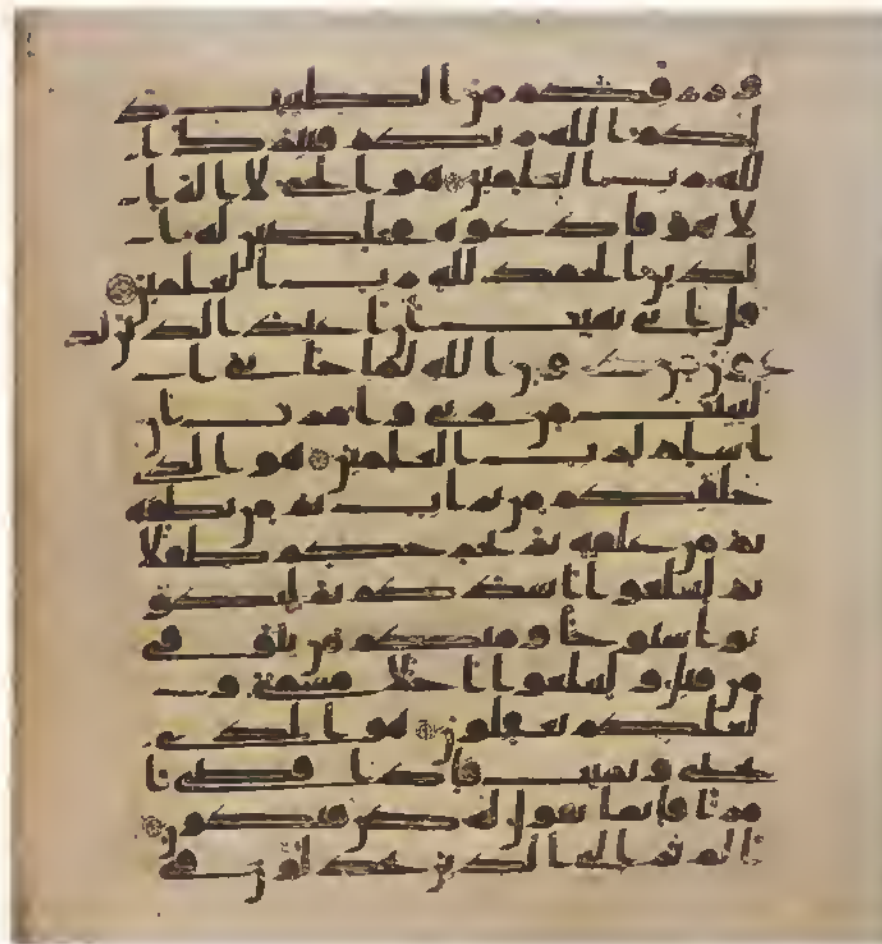 ورزقكم من الطيبت ذ
لكم الله ربكم فتبرك ا
لله رب العلمين هو الحي لا اله ا
لا هو فادعوه مخلصين له ا
لدين الحمد لله رب العلمين
قل اني نهيت ان اعبد الذين تد
عون من دون الله لما جاني ا
لبينت من ربي وامرت ان
اسلم لرب العلمين هو الذي
خلقكم من تراب ثم من نطفة
ثم من علقة ثم يخرجكم طفلا
ثم لتبلغوا اشدكم ثم لتكو
نوا شيوخا ومنكم من يتوفى
من قبل ولتبلغوا اجلا مسمى و
لعلكم تعقلون هو الذي
يحي ويميت فاذا قضى ا
مرا فانما يقول له كن فيكون
الم تر الى الذين يجدلون في